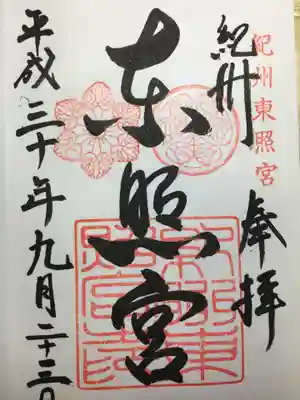 紀州東照宮
紀州
奉拝
東照宮
平成三十年九月二十三日